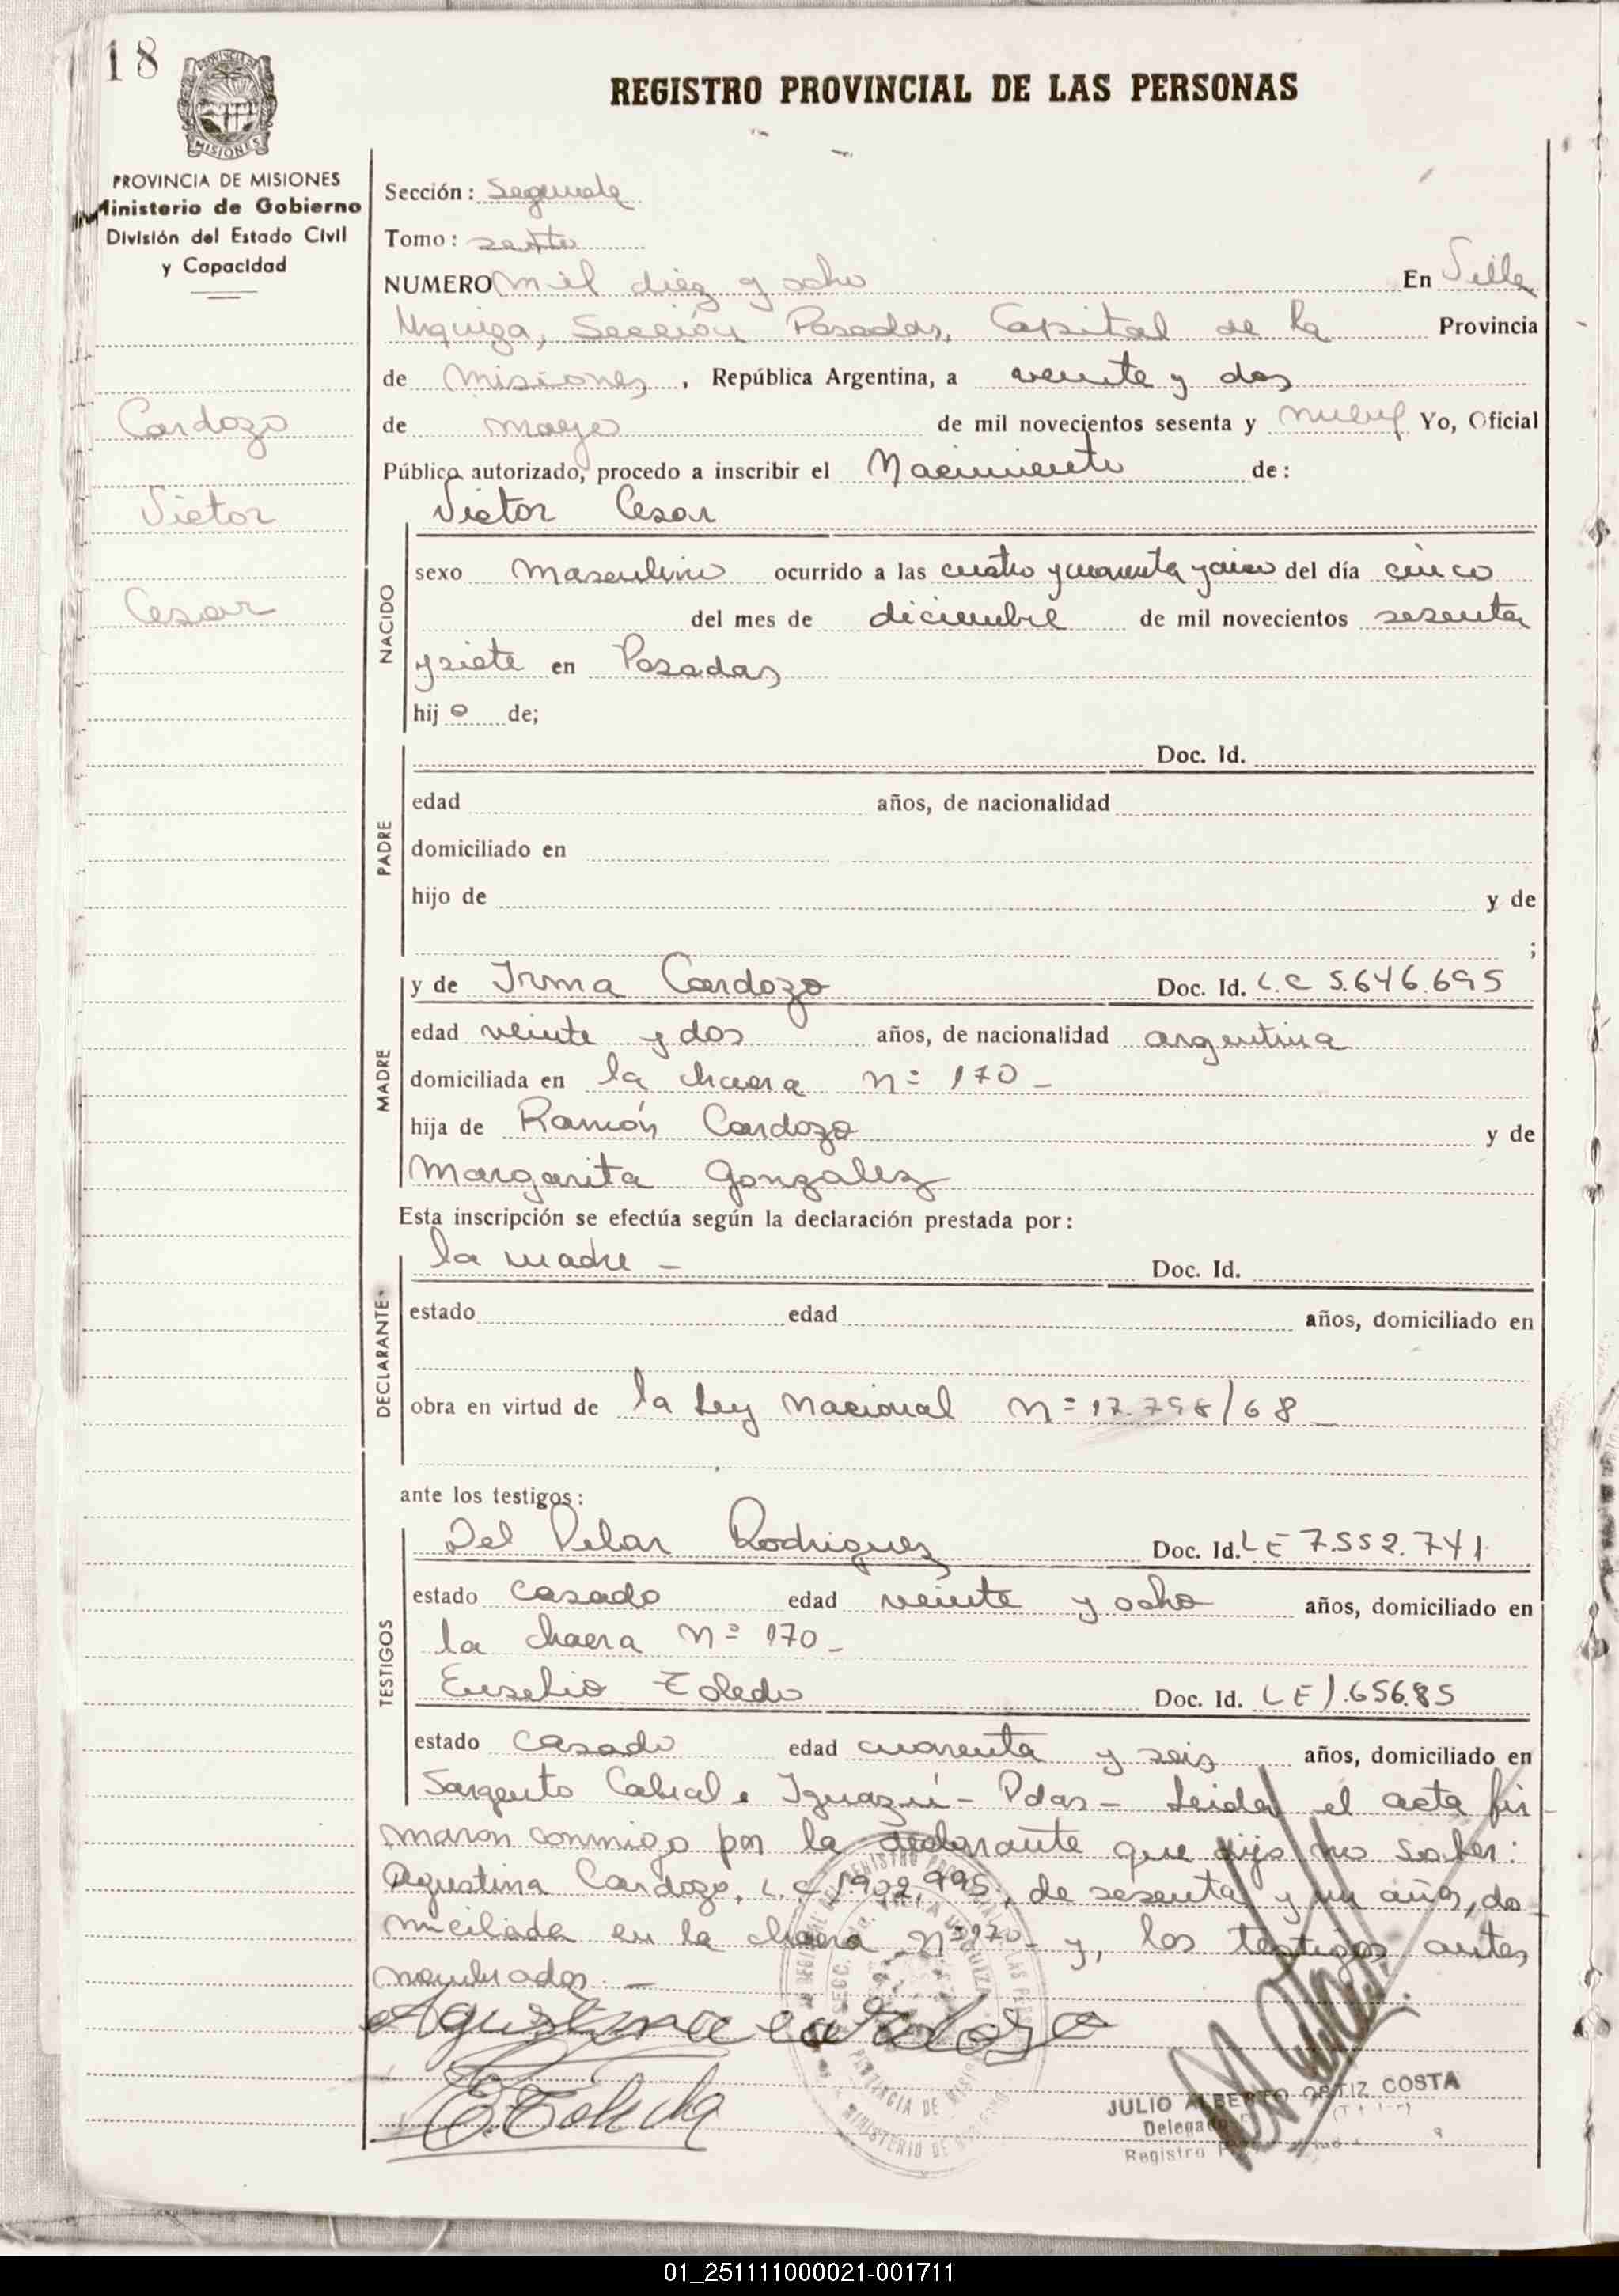 18
REGISTRO PROVINCIAL DE LAS PERSONAS
PROVINCIA DE
MISIONES
PROVINCIA DE MISIONES
Ministerio de Gobierno
División del Estado Civil
y Capacidad
Cardozo
Victor
Cesar
Sección: Segunda
Tomo: sexto
NUMERO mil diez y ocho En Villa
Urquiza, Sección Posadas, Capital de la Provincia
de Misiones, República Argentina, a veinte y dos
de mayo de mil novecientos sesenta y nueve Yo, Oficial
Público autorizado, procedo a inscribir el Nacimiento de:
Victor Cesar
NACIDO
sexo masculino ocurrido a las cuatro y cuarenta y cinco del día cinco
del mes de diciembre de mil novecientos sesenta
y siete en Posadas
hijo de;
PADRE
Doc. Id.
edad años, de nacionalidad
domiciliado en
hijo de y de
;
MADRE
y de Irma Cardozo Doc. Id. L.C 5.646.695
edad veinte y dos años, de nacionalidad argentina
domiciliada en la chacra nº 170 -
hija de Ramón Cardozo y de
Margarita Gonzalez
Esta inscripción se efectúa según la declaración prestada por:
DECLARANTE
la madre - Doc. Id.
estado edad años, domiciliado en
obra en virtud de la Ley Nacional nº 17.798/68
ante los testigos:
TESTIGOS
Del Pilar Rodriguez Doc. Id. LE 7.552.741
estado casado edad veinte y ocho años, domiciliado en
la chacra nº 170 -
Eusebio Toledo Doc. Id. LE 1.656.85
estado casado edad cuarenta y seis años, domiciliado en
Sargento Cabral e Iguazú - Pdas - Leida el acta fir
maron conmigo por la declarante que dijo no saber:
Agustina Cardozo, L.C 1.902.995, de sesenta y un años, do
miciliada en la chacra nº 170 - y, los testigos antes
nombrados. -
Agustina cardozo
E. Toledo
JULIO ALBERTO ORTIZ COSTA
Registro
01_251111000021-001711